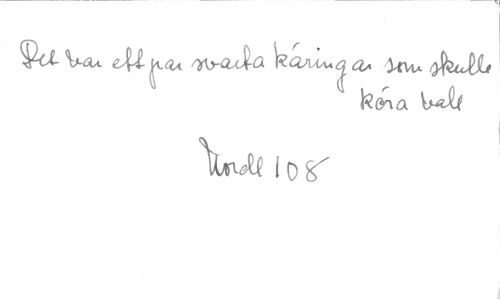 Det var ett par svarta käringar som skulle
köra vall
Nordl 108